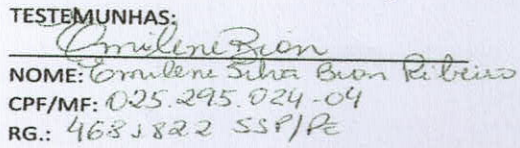 TESTEMUNHAS:
Emilene Bion
NOME: Emilene Silva Bion Ribeiro
CPF/MF: 025.295.024-04
RG.: 4681822 SSP/PE